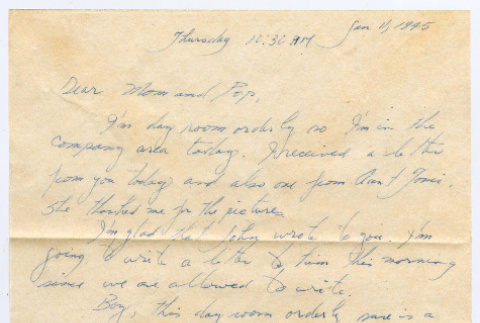 Thursday 10:30 AM Jan 4, 1945
Dear Mom and Pop,
I'm day room orderly so I'm in the
company area today. I received a letter
from you today and also one from Aunt
She thanked me for the pictures
I'm glad that John wrote to you. I'm
going to write a letter to him this morning
since we are allowed to write.
Boy, this day room orderly sure is a